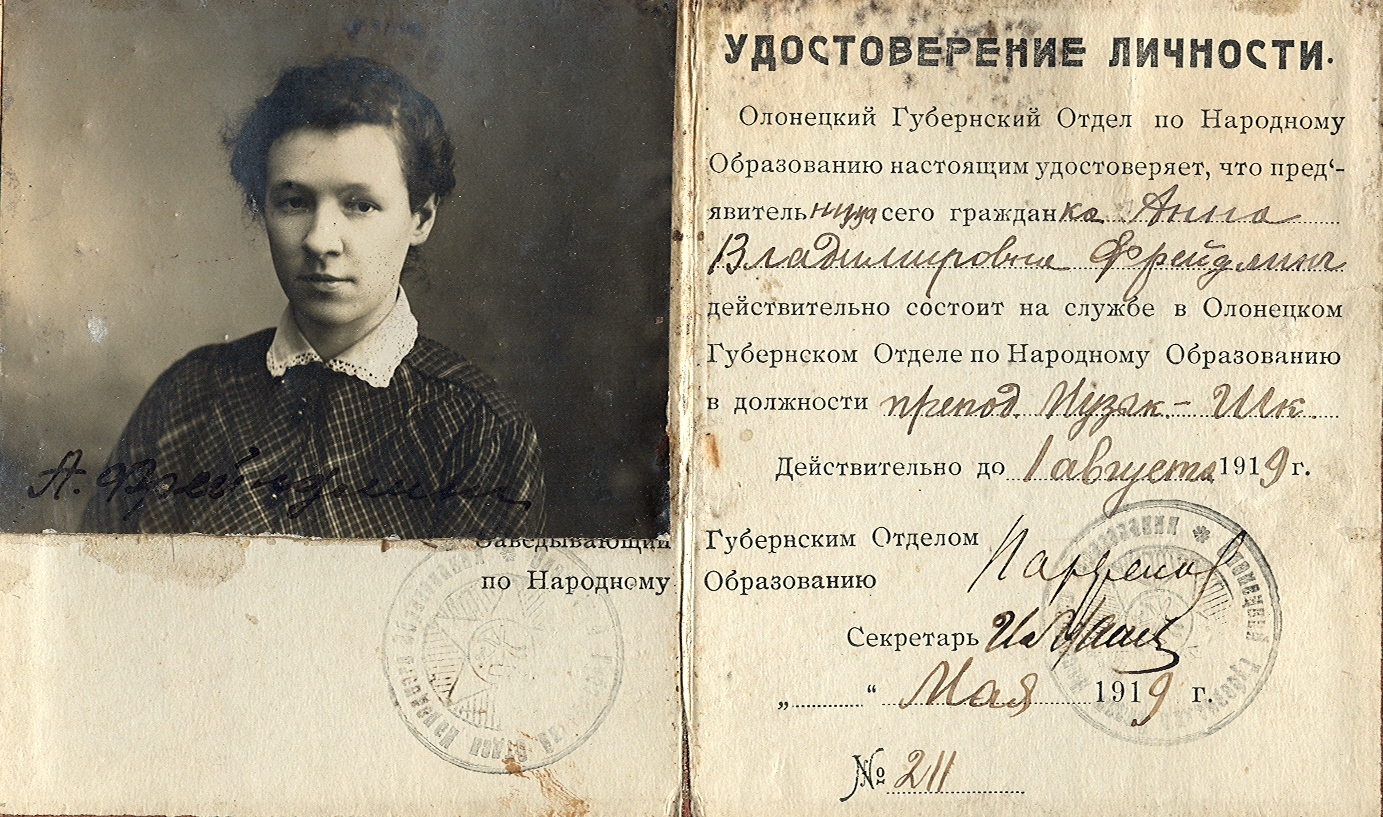 УДОСТОВЕРЕНИЕ ЛИЧНОСТИ.
Олонецкий Губернский Отдел по Народному
Образованию настоящим удостоверяет, что пред‘-
явительница сего гражданка Анна
Владимировна Фрейдлинг
действительно состоит на службе в Олонецком
Губернском Отделе по Народному Образованию
в должности препод. Музык- Шк
Действительно до 1 августа 1919 г.
А. Фрейндлинг
Заведывающий Губернским Отделом
по Народному Образованию
Секретарь
„ “ Мая 1919 г.
№ 211